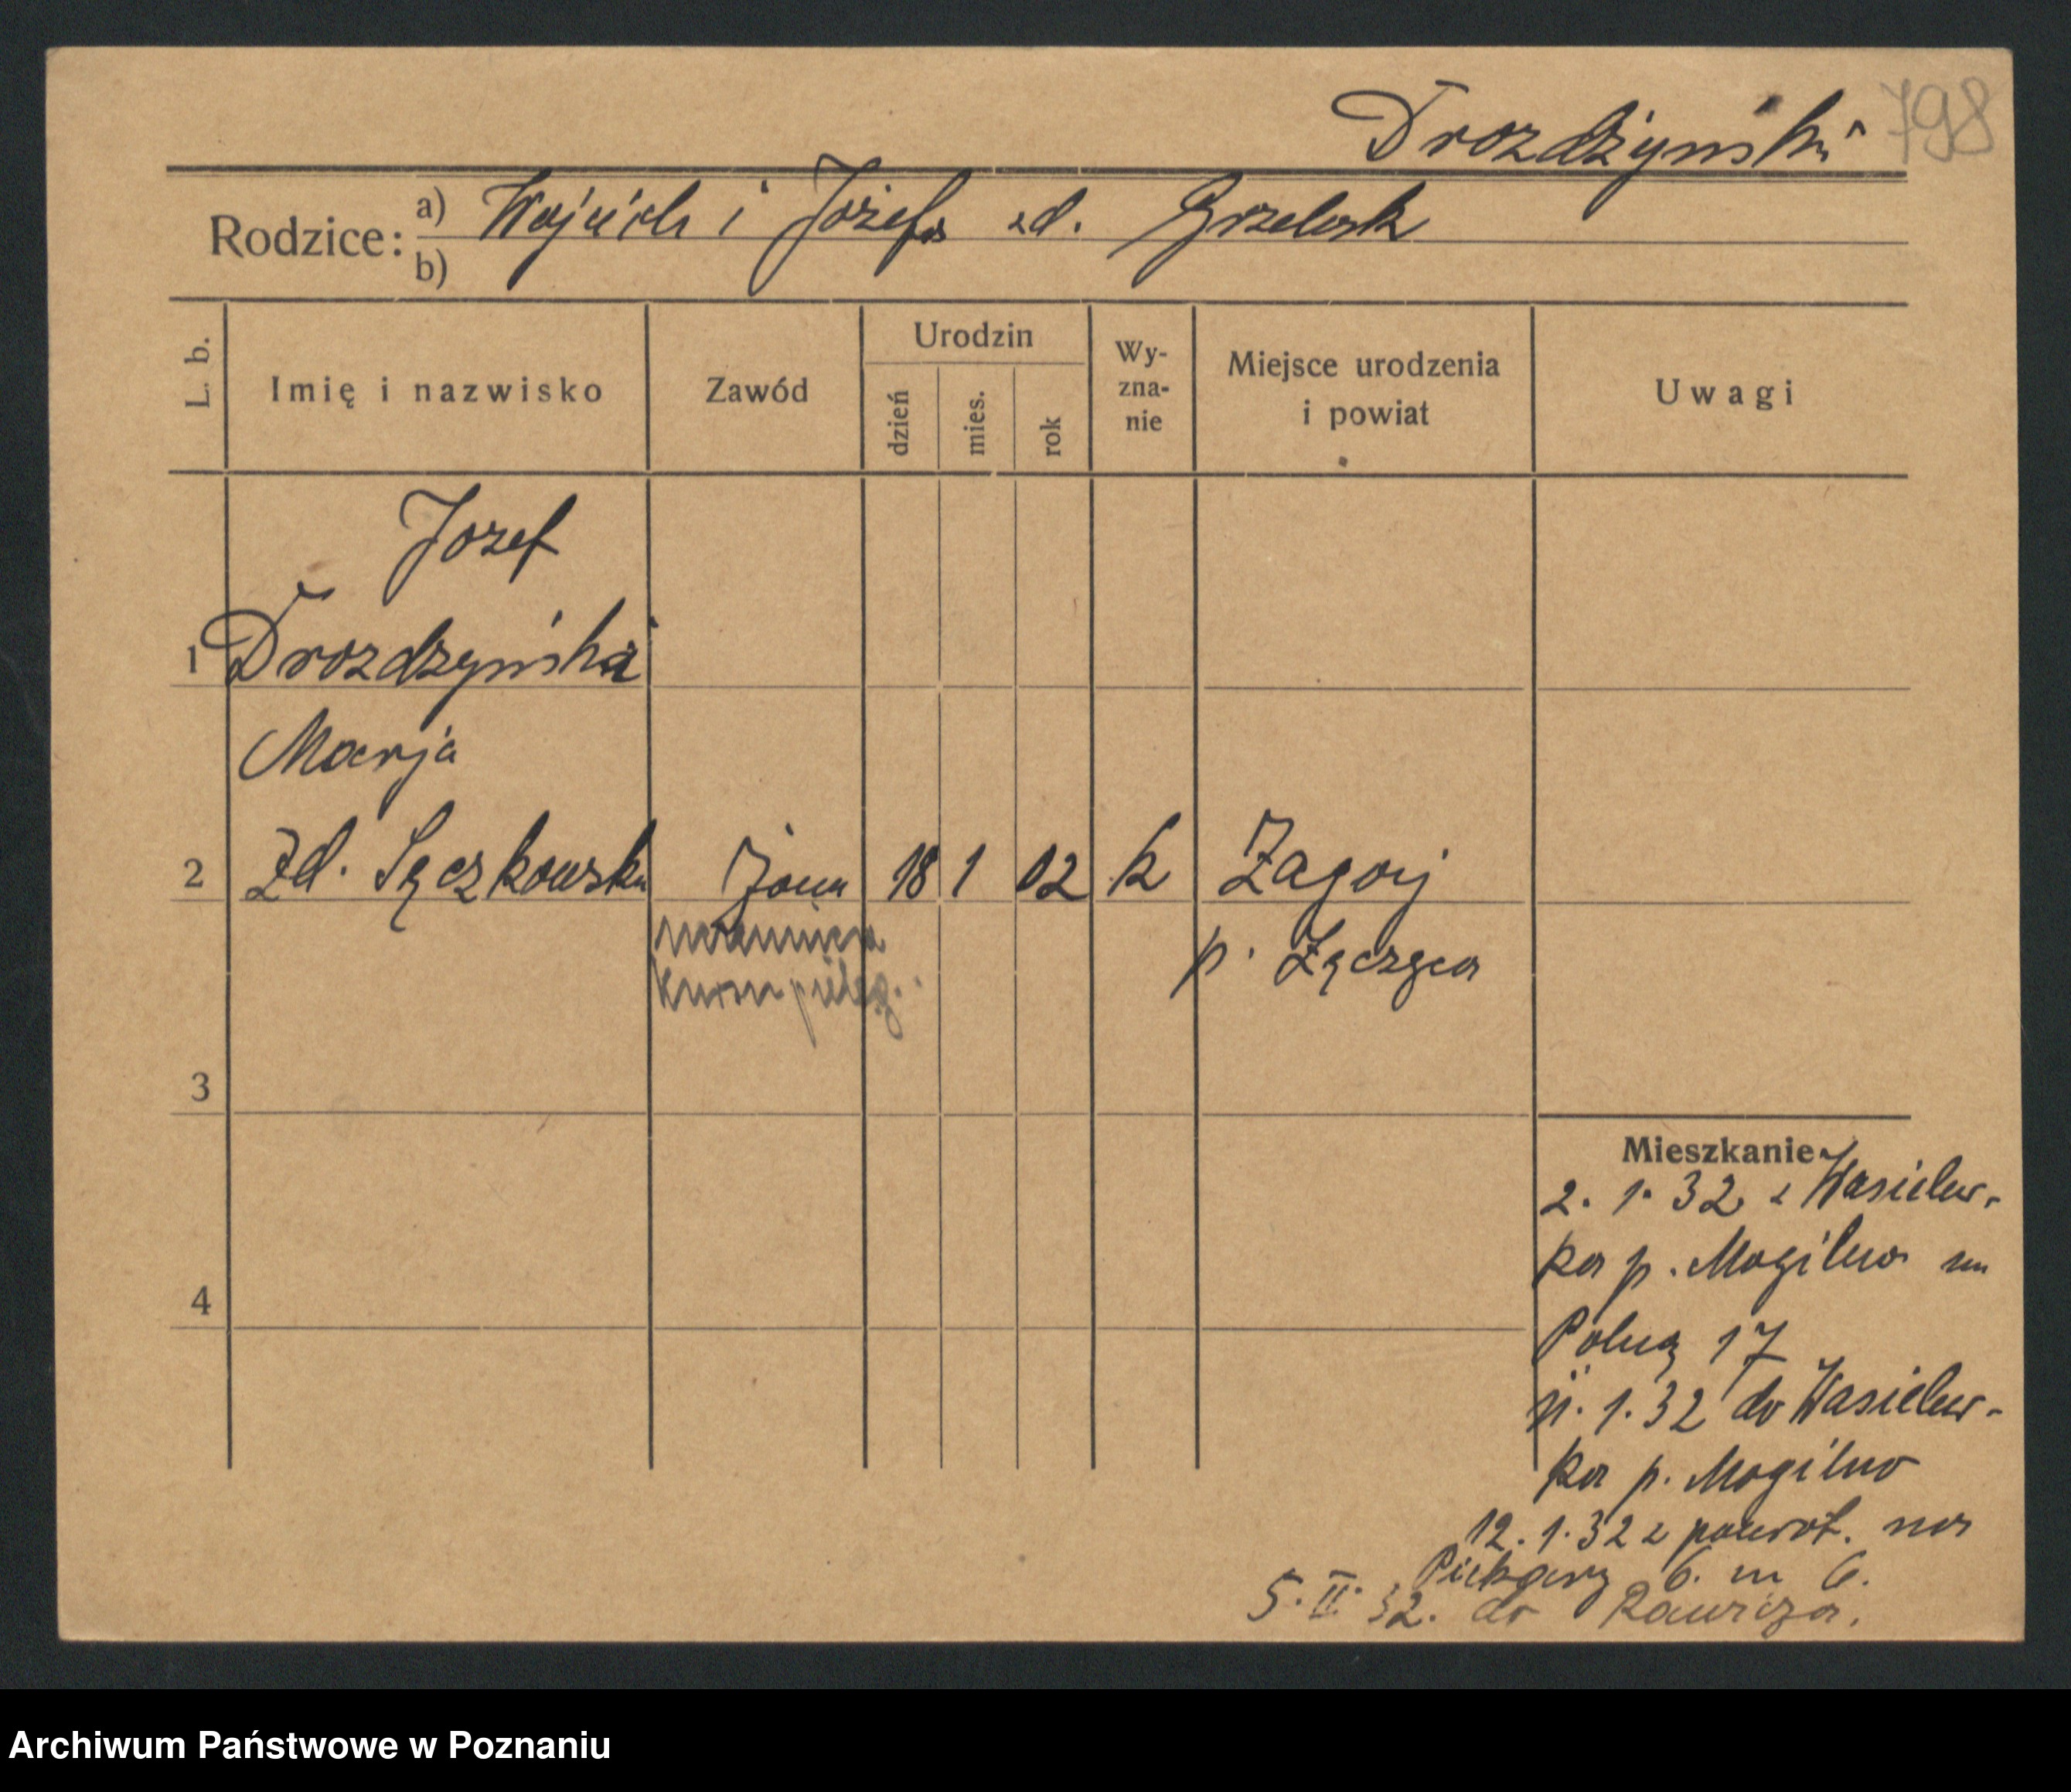 Drozdżyński 798
Rodzice: a) Wojciech i Józefa zd. Grzelak
b)
L. b.
Imię i nazwisko
Zawód
Urodzin
dzień
mies.
rok
Wy-
zna-
nie
Miejsce urodzenia
i powiat
Uwagi
Jozef
1 Drozdzyński
Marja
2 zd. Sęczkowska żona 18 1 02 k Zagaj
p. Łęczyca
kursu pielęg.
3
4
Mieszkanie
2. 1. 32 z Wasielew-
ka p. Mogilno na
Polną 17
11. 1. 32 do Wasielew-
ka p. Mogilno
12. 1. 32 z powrot. na
Piekary 6. m 6.
5. II. 32. do Rawicza.
Archiwum Państwowe w Poznaniu